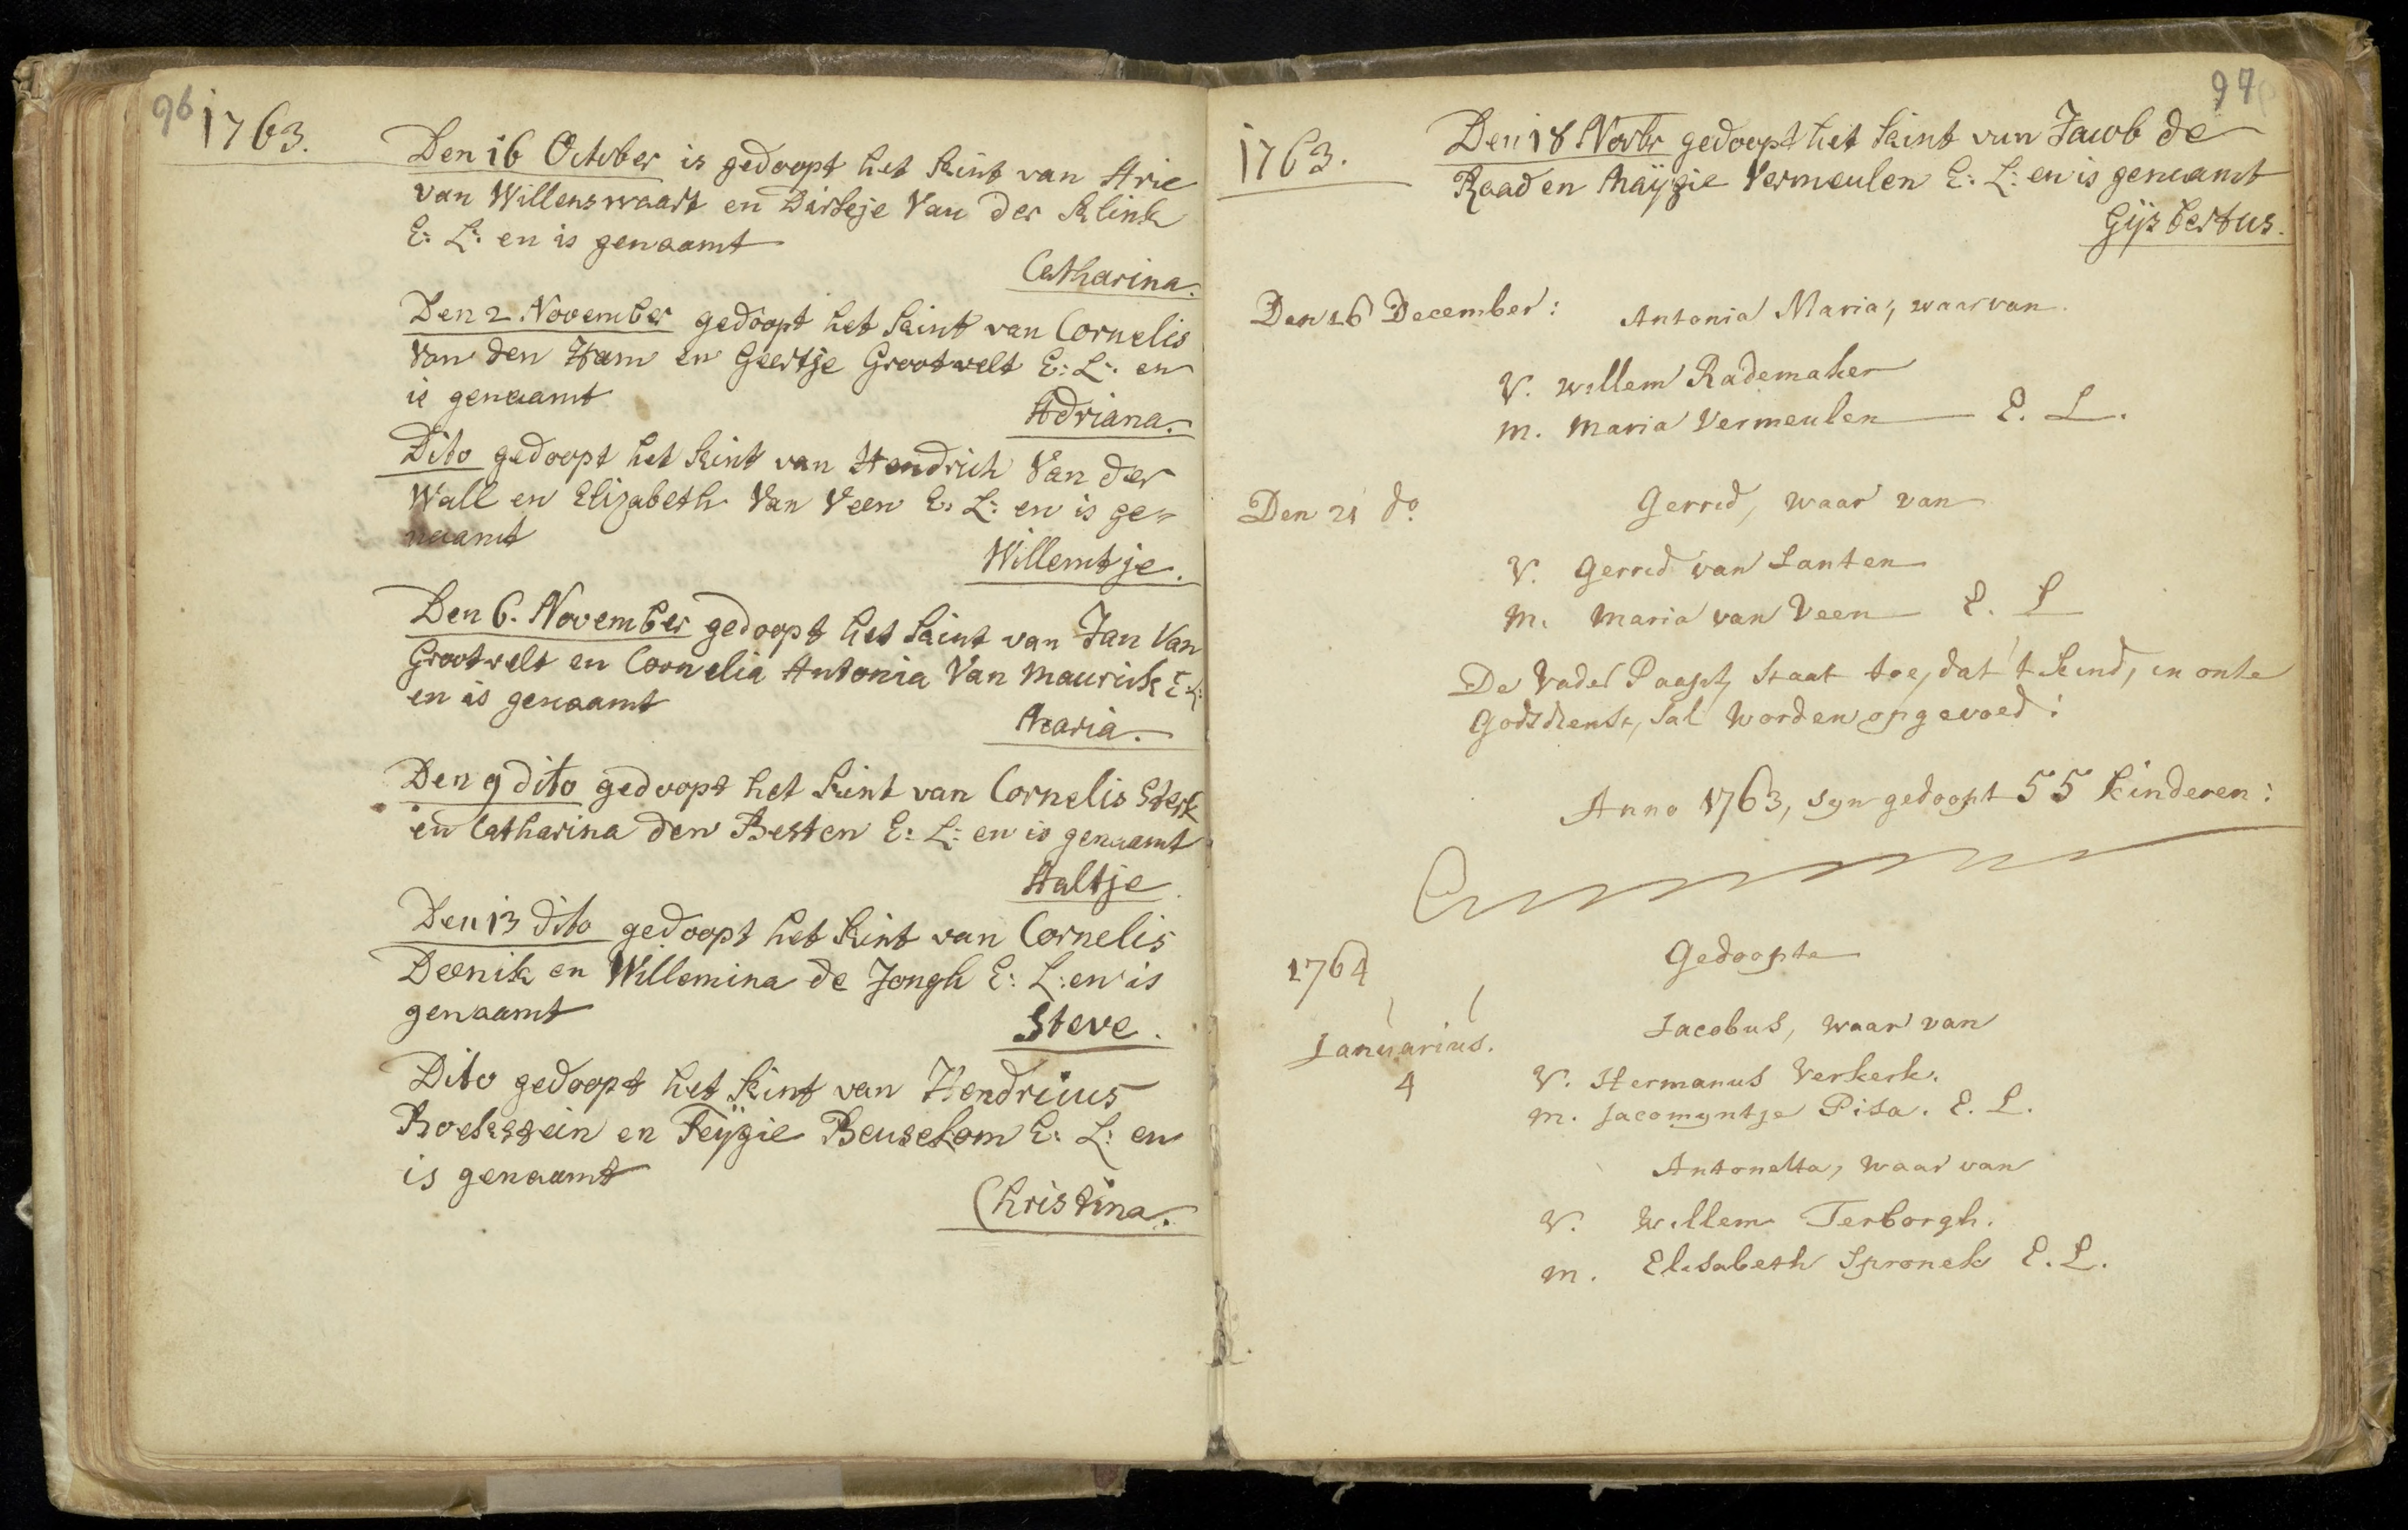 96
1763.
Den 16 October is gedoopt het kint van Arie
van Willenswaart en Dirkje Van der Klink
E: L: en is genaamt
Catharina.
Den 2. November gedoopt het kint van Cornelis
Van den Ham en Geertje Grootvelt E: L: en
is genaamt
Adriana.
Dito gedoopt het kint van Hendrick Van der
Wall en Elizabeth Van Veen E: L: en is ge=
naamt
Willemtje.
Den 6. November gedoopt het kint van Jan Van
Grootvelt en Cornelia Antonia Van Maurick E: L:
en is genaamt
Maria.
Den 9 dito gedoopt het kint van Cornelis Sterk
en Catharina den Besten E: L: en is genaamt
Aaltje
Den 13 dito gedoopt het kint van Cornelis
Deenik en Willemina de Jongh E: L: en is
genaamt
Steve.
Dito gedoopt het kint van Hendricus
en Feÿgie Beusekom E: L: en
is genaamt
Christina.
97
1763.
Den 18 Novbr gedoopt het kint van Jacob de
Raad en Maÿgie Vermeulen E: L: en is genaamt
Gijsbertus.
Den 16 December: Antonia Maria, waarvan
V. Willem Rademaker
M. Maria Vermeulen E. L.
Den 21 do Gerrid, waar van
V. Gerrid van Santen
M. Maria van Veen E. L
De Vader Paapsch, staat toe, dat 't kind, in onse
Godsdienst, sal worden opgevoed:
Anno 1763, syn gedoopt 55 kinderen:
Gedoopte
1764
Januarius. Jacobus, waar van
4 V. Hermanus Verkerk.
M. Jacomyntje Pisa. E. L.
Antonetta, waar van
V. Willem Terborgh.
M. Elisabeth Spronck E. L.